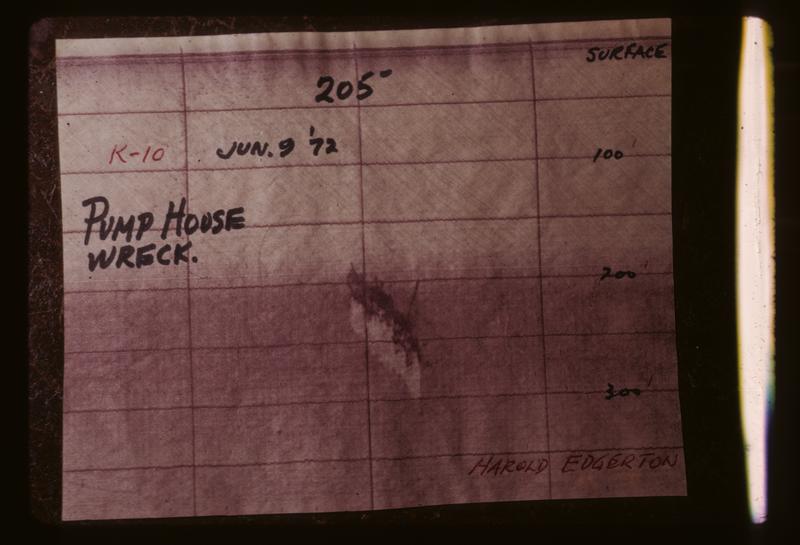 SURFACE
205'
K-10 JUN. 9 '72
100'
PUMP HOUSE
WRECK.
200'
300'
HAROLD EDGERTON